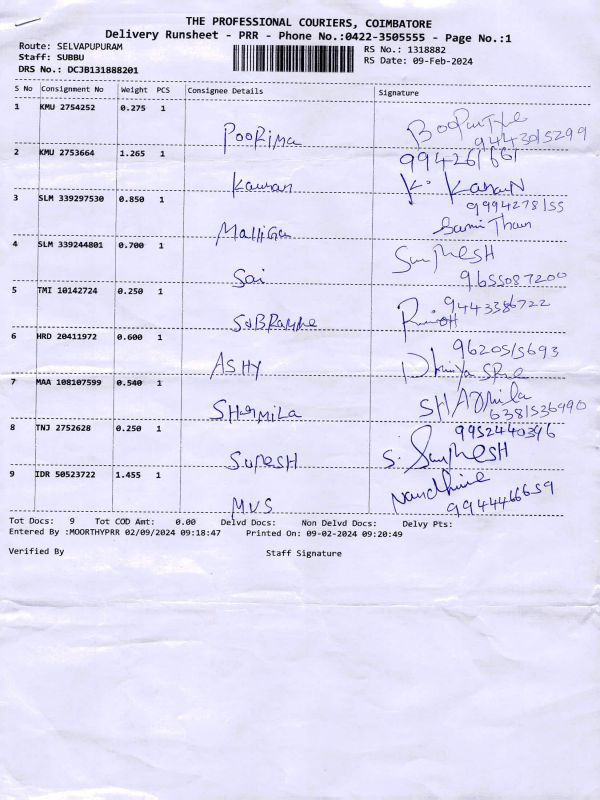 THE PROFESSIONAL COURIERS, COIMBATORE
Delivery Runsheet - PRR - Phone No.:0422-3505555 - Page No.:1
Route: SELVAPUPURAM
Staff: SUBBU
DRS No.: DCJB131888201
RS No.: 1318882
RS Date: 09-Feb-2024
S No Consignment No Weight PCS Consignee Details Signature
1 KMU 2754252 0.275 1
POORIMA
2 KMU 2753664 1.265 1
K. KANAN
3 SLM 339297530 0.850 1
Malliga
4 SLM 339244801 0.700 1
SURESH
Sai 9655087200
5 TMI 10142724 0.250 1
9443386722
6 HRD 20411972 0.600 1
ASHY
7 MAA 108107599 0.540 1
SHARMILA
SHARMILA 6381536990
8 TNJ 2752628 0.250 1 9952440396
SURESH S. SURESH
9 IDR 50523722 1.455 1 Nandhine
MVS 9944466659
Tot Docs: 9 Tot COD Amt: 0.00 Delvd Docs: Non Delvd Docs: Delvy Pts:
Entered By :MOORTHYPRR 02/09/2024 09:18:47 Printed On: 09-02-2024 09:20:49
Verified By Staff Signature